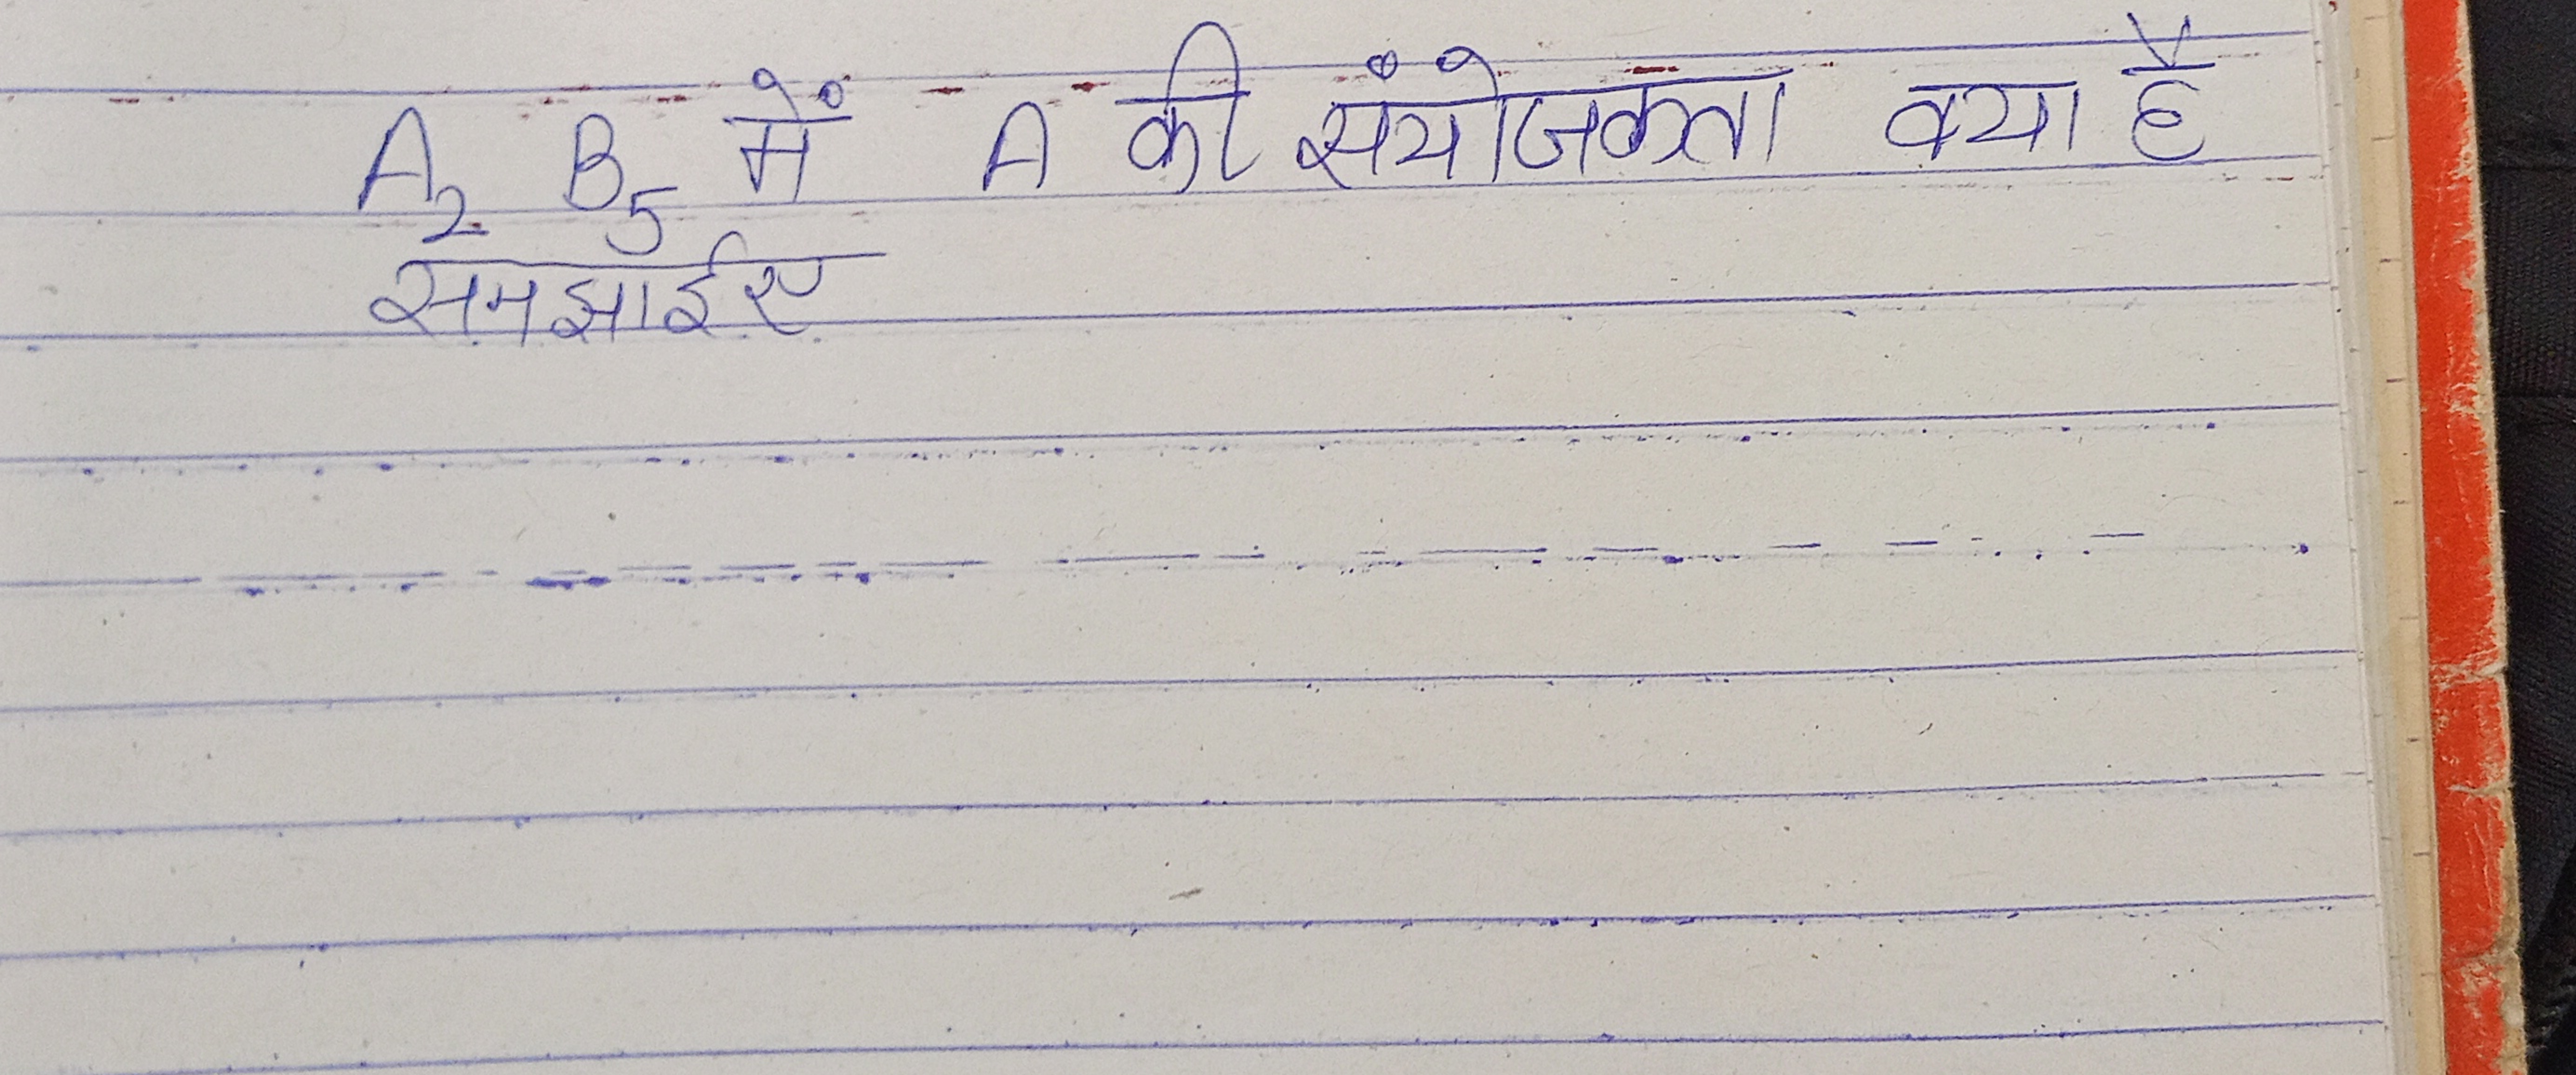 A₂ B₅ में A की संयोजकता क्या है
समझाईए